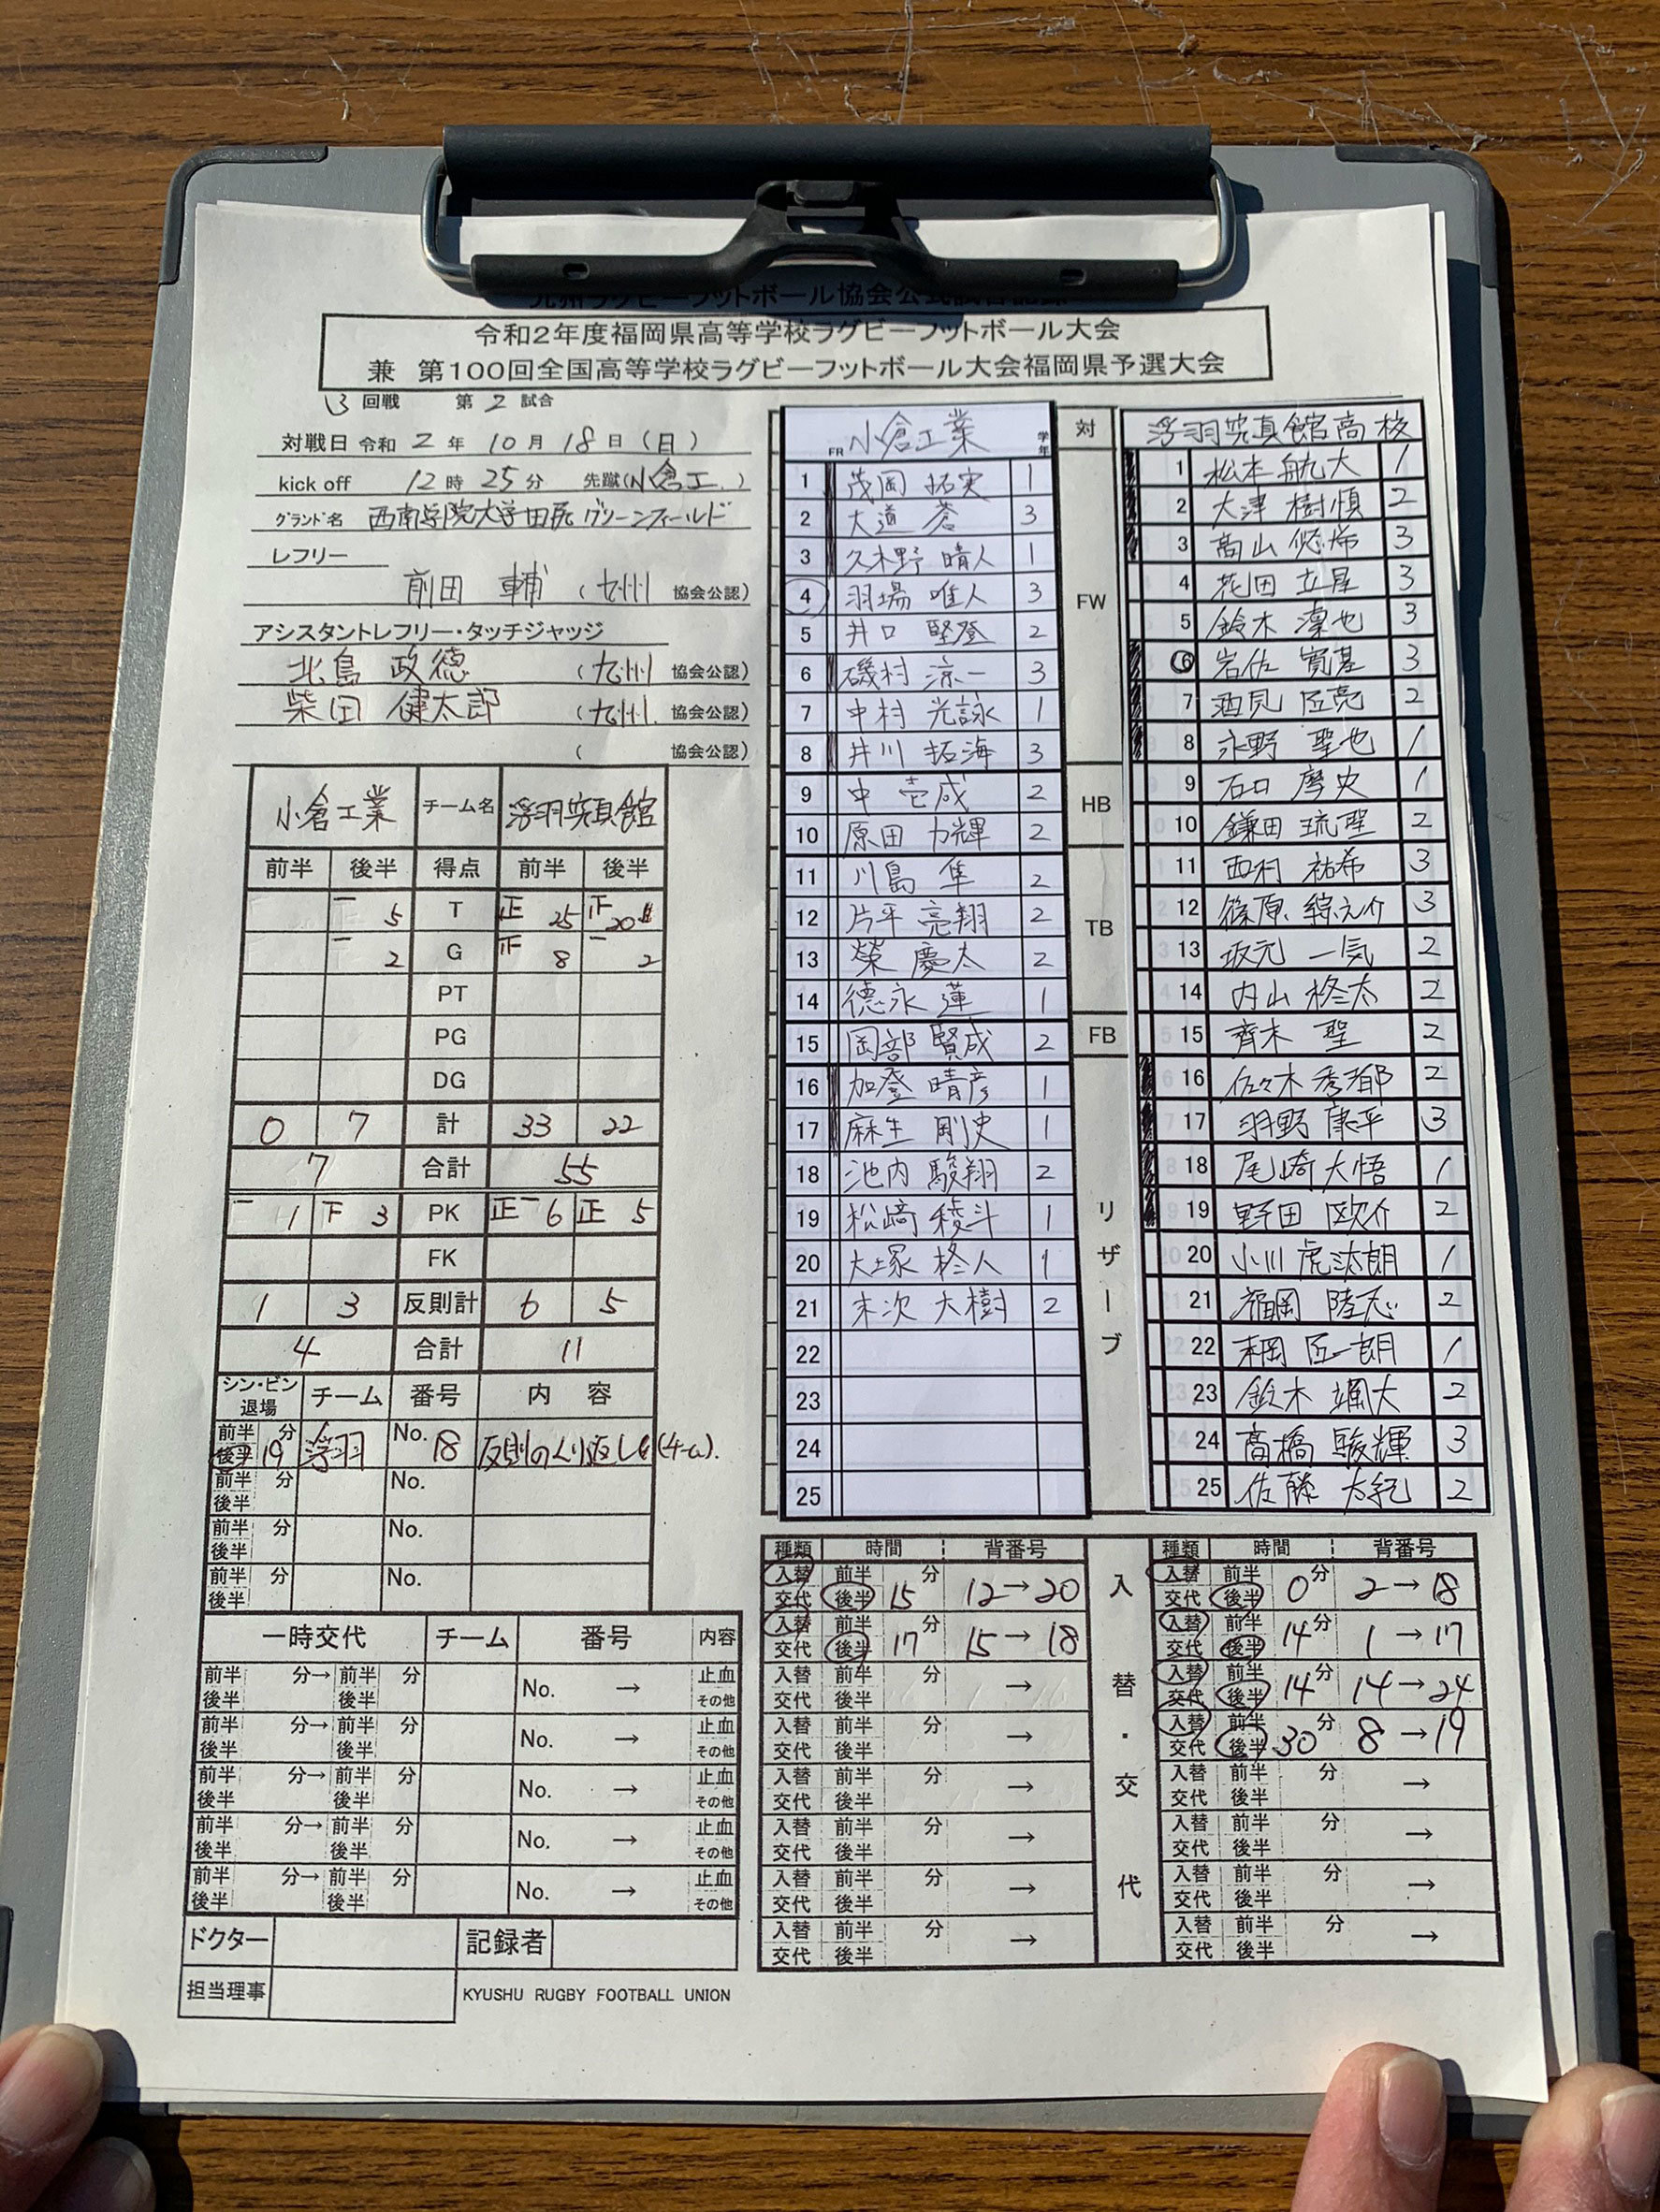 九州ラグビーフットボール協会公式試合記録
令和2年度福岡県高等学校ラグビーフットボール大会
兼 第100回全国高等学校ラグビーフットボール大会福岡県予選大会
3 回戦 第 2 試合
対戦日 令和 2 年 10 月 18 日 (日)
kick off 12 時 25 分 先蹴(小倉工.)
グランド名 西南学院大学田尻グリーンフィールド
レフリー
前田 輔 (九州 協会公認)
アシスタントレフリー・タッチジャッジ
北島 政徳 (九州 協会公認)
柴田 健太郎 (九州. 協会公認)
( 協会公認)
小倉工業 チーム名 浮羽究真館
前半 後半 得点 前半 後半
一 5 T 正 25 正 20
一 2 G 正 8 一 2
PT
PG
DG
0 7 計 33 22
7 合計 55
一 1 下 3 PK 正一 6 正 5
FK
1 3 反則計 6 5
4 合計 11
シン・ビン 退場 チーム 番号 内 容
前半 後半 19 分 浮羽 No. 18 反則のくり返し(4-a).
前半 後半 分 No.
前半 後半 分 No.
前半 後半 分 No.
一時交代 チーム 番号 内容
前半 後半 分→ 前半 後半 分 No. → 止血 その他
前半 後半 分→ 前半 後半 分 No. → 止血 その他
前半 後半 分→ 前半 後半 分 No. → 止血 その他
前半 後半 分→ 前半 後半 分 No. → 止血 その他
前半 後半 分→ 前半 後半 分 No. → 止血 その他
ドクター 記録者
担当理事 KYUSHU RUGBY FOOTBALL UNION
FR 小倉工業 学年
1 茂岡 拓実 1
2 大道 蒼 3
3 久木野 晴人 1
4 羽場 唯人 3
5 井口 堅登 2
6 磯村 涼一 3
7 中村 光詠 1
8 井川 拓海 3
9 中 壱成 2
10 原田 力輝 2
11 川島 隼 2
12 片平 亮翔 2
13 榮 慶太 2
14 徳永 蓮 1
15 岡部 賢成 2
16 加登 晴彦 1
17 麻生 剛史 1
18 池内 駿翔 2
19 松﨑 稜斗 1
20 大塚 柊人 1
21 末次 大樹 2
22
23
24
25
対
FW
HB
TB
FB
リザーブ
浮羽究真館高校
1 松本 航大 1
2 大津 樹慎 2
3 高山 悠希 3
4 花田 立星 3
5 鈴木 凜也 3
6 岩佐 寛甚 3
7 酒見 匠亮 2
8 永野 聖也 1
9 石口 摩史 1
10 鎌田 琉聖 2
11 西村 祐希 3
12 篠原 3
13 坂元 一気 2
14 内山 柊太 2
15 齊木 聖 2
16 佐々木 秀都 2
17 羽野 康平 3
18 尾崎 大悟 1
19 野田 欧介 2
20 小川 虎汰朗 1
21 福岡 陸志 2
22 末岡 匠一朗 1
23 鈴木 颯大 2
24 髙橋 駿輝 3
25 佐藤 大紀 2
種類 時間 背番号
入替 交代 前半 後半 15 分 12→20
入替 交代 前半 後半 17 分 15→18
入替 交代 前半 後半 分 →
入替 交代 前半 後半 分 →
入替 交代 前半 後半 分 →
入替 交代 前半 後半 分 →
入替 交代 前半 後半 分 →
入替 交代 前半 後半 分 →
入替・交代
種類 時間 背番号
入替 交代 前半 後半 0 分 2→18
入替 交代 前半 後半 14 分 1→17
入替 交代 前半 後半 14 分 14→24
入替 交代 前半 後半 30 分 8→19
入替 交代 前半 後半 分 →
入替 交代 前半 後半 分 →
入替 交代 前半 後半 分 →
入替 交代 前半 後半 分 →